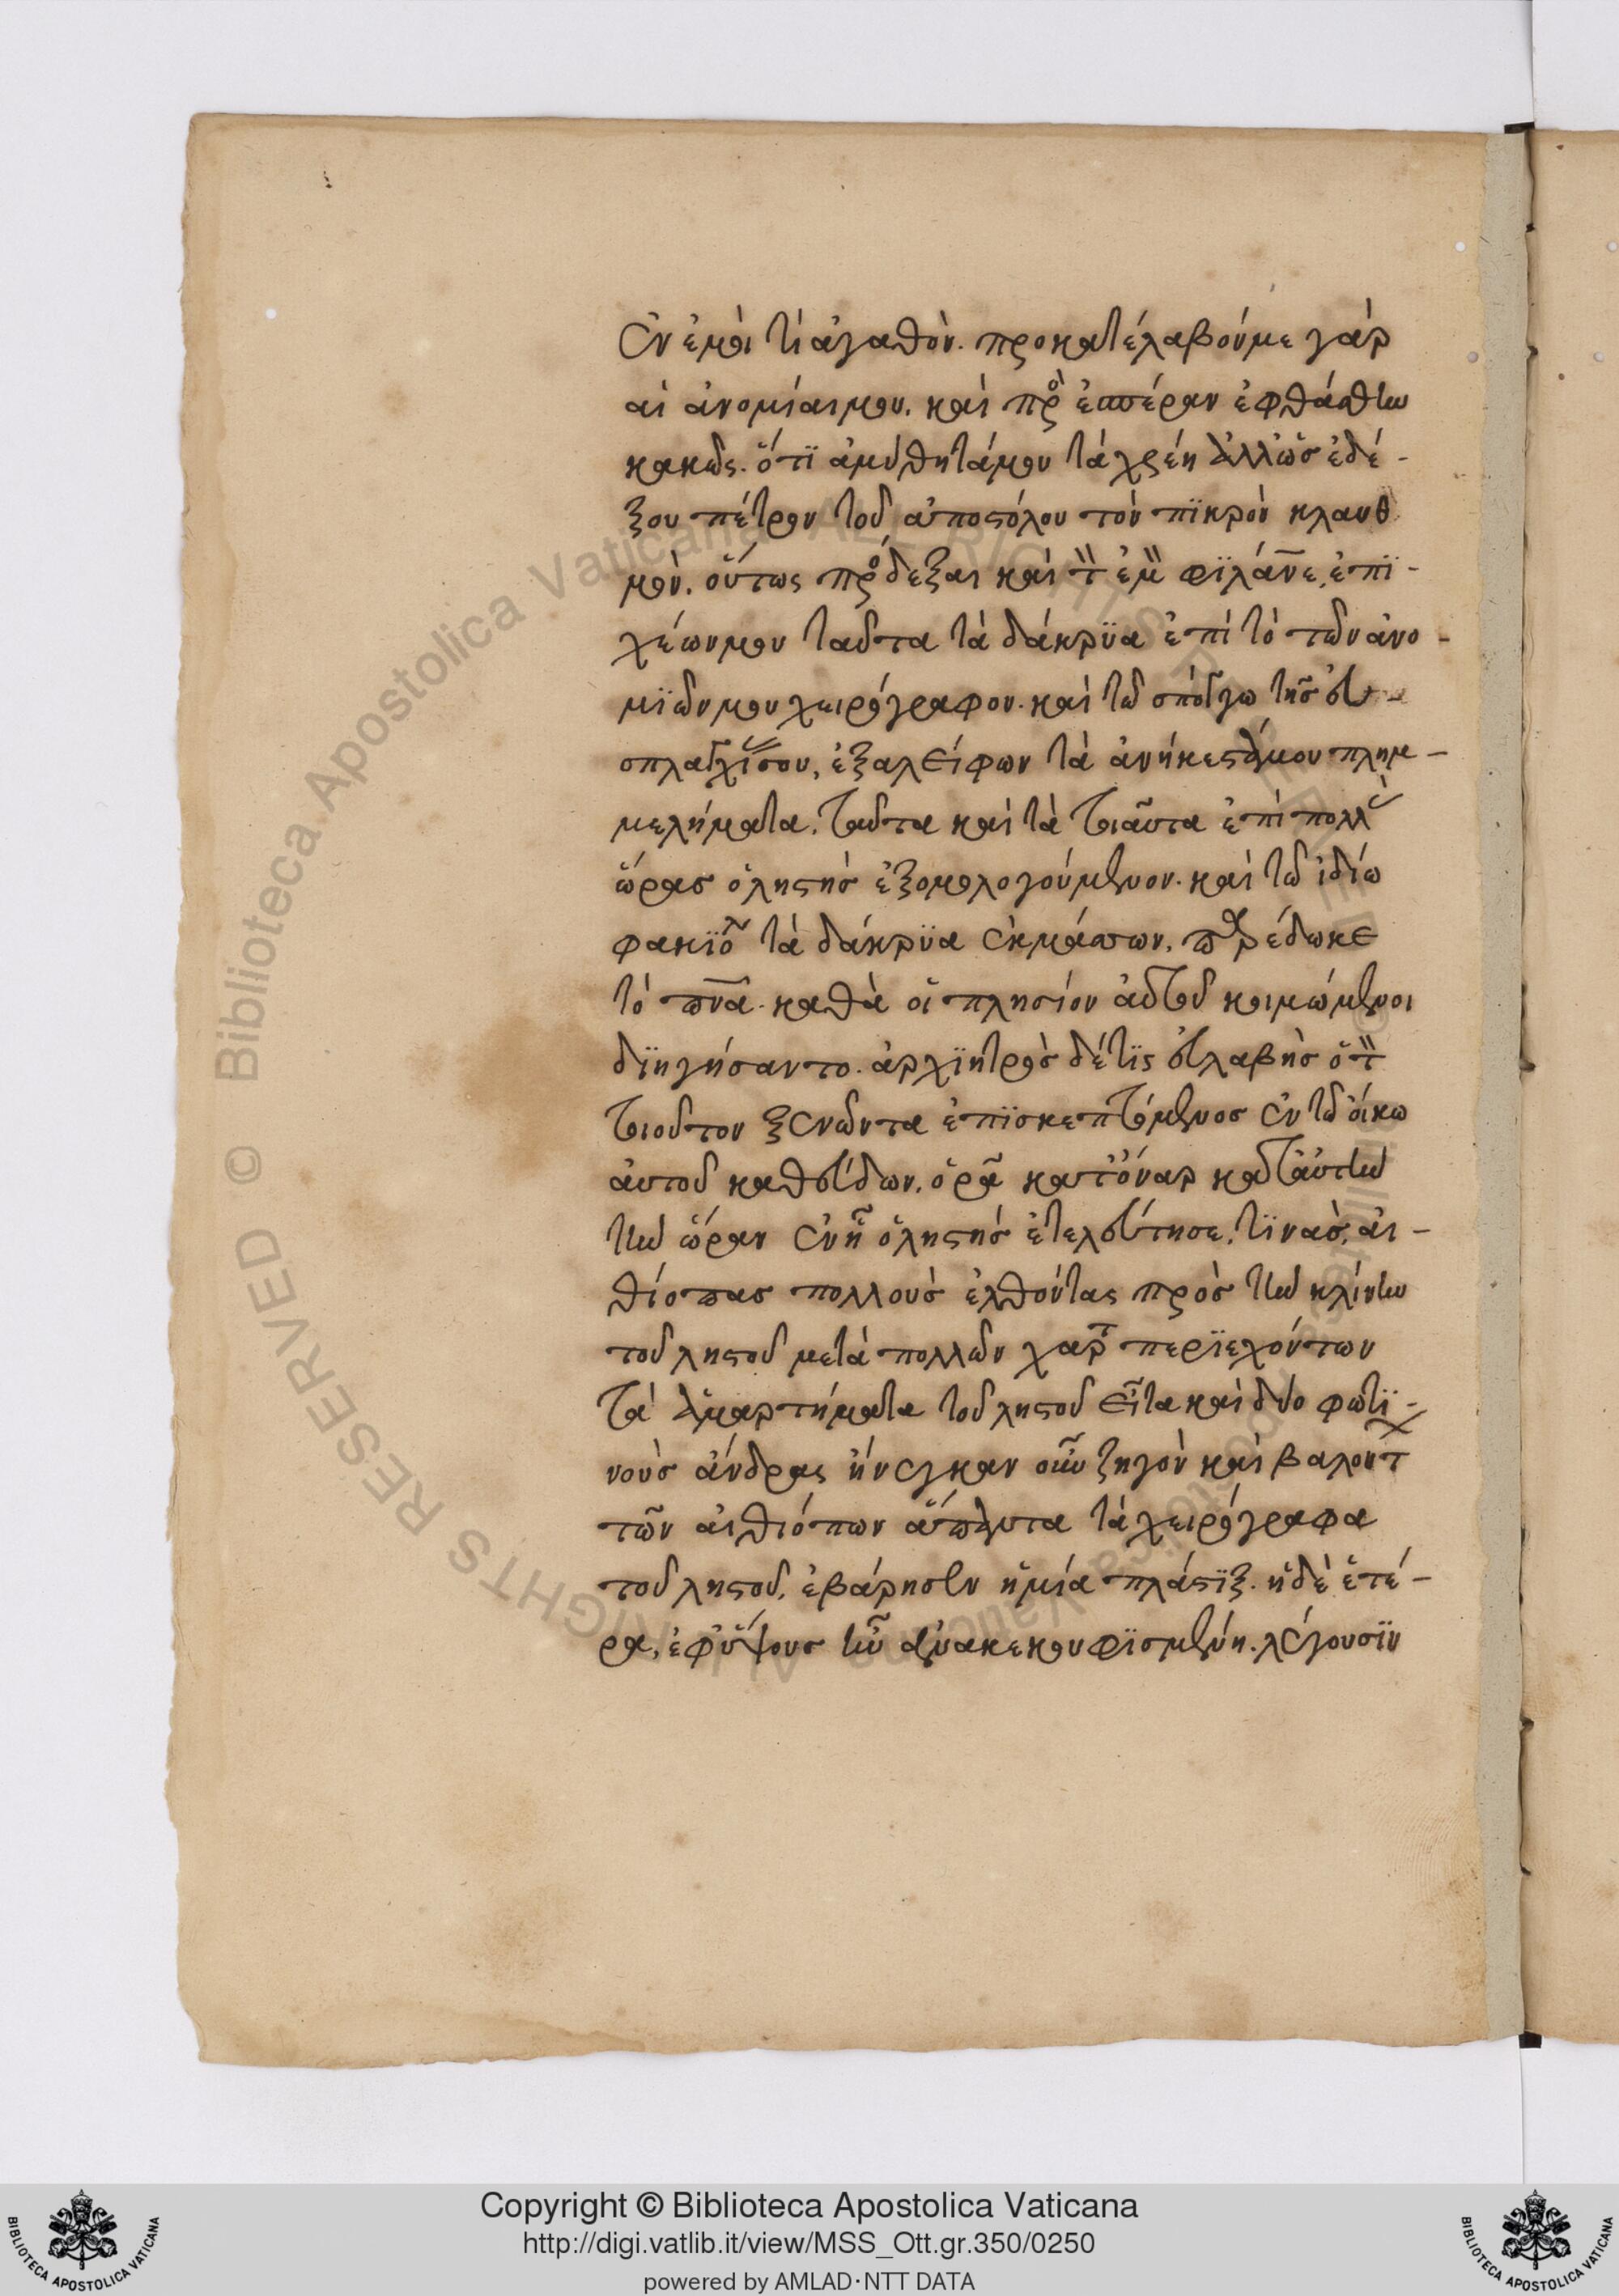 ἐν ἐμοὶ τὶ ἀγαθὸν. προκατέλαβούμε γὰρ
αἱ ἀνομίαι μου. καὶ πρὸ ἑσπέραν ἐφθάσθην
κακῶς. ὅτι ἀμύθητά μου τὰ χρέη ἀλλ' ὡς ἐδέ-
ξου πέτρου τοῦ ἀποστόλου τὸν πϊκρὸν κλαυθ
μὸν. οὕτως πρόδεξαι καὶ τ ἐμ φϊλάνε, ἐπϊ-
χέων μου ταῦτα τὰ δάκρϋα ἐπὶ τὸ τῶν ἀνο-
μϊῶν μου χειρόγραφον. καὶ τῶ σπόγγω τῆς εὐ-
σπλαγχνίας σου, ἐξαλείφων τὰ ἀνήκεστά μου πλημ-
μελήματα. ταῦτα καὶ τὰ τοιαῦτα ἐπὶ πολλὰς
ὥρας ὁ ληστὴς ἐξομολογούμενον. καὶ τῶ ἰδίω
φακϊολ τὰ δάκρϋα ἐκμάσσων. παρέδωκε
τὸ πνα. καθὰ οἱ πλησίον αὐτοῦ κοιμώμενοι
δϊηγήσαντο. ἀρχϊητρὸς δέ τϊς εὐλαβὴς ὁ τ
τοιοῦτον ξενῶντα ἐπϊσκεπτόμενος ἐν τῶ οἴκω
αὐτοῦ καθεύδων. ὁρᾶ κατ' ὄναρ κατ' αὐτὴν
τὴν ὥραν ἐν ἧ ὁ ληστὴς ἐτελεύτησε. τϊνὰς αἰ-
θίοπας πολλοὺς ἐλθόντας πρὸς τὴν κλίνην
τοῦ ληστοῦ μετὰ πολλῶν χαρτ περϊεχόντων
τὰ ἁμαρτήματα τοῦ ληστοῦ εἶτα καὶ δύο φωτϊ-
νοὺς ἄνδρας ἤνεγκαν οὖν ζηγὸν καὶ βαλοντ
τῶν αἰθιόπων ἅπαντα τὰ χειρόγραφα
τοῦ ληστοῦ. ἐβάρησεν ἡ μία πλάστϊξ. ἡ δὲ ἑτέ-
ρα, ἐφ' ὕψους ἦν ἀνακεκουφϊσμένη. λέγουσϊν
Copyright © Biblioteca Apostolica Vaticana
http://digi.vatlib.it/view/MSS_Ott.gr.350/0250
powered by AMLAD·NTT DATA